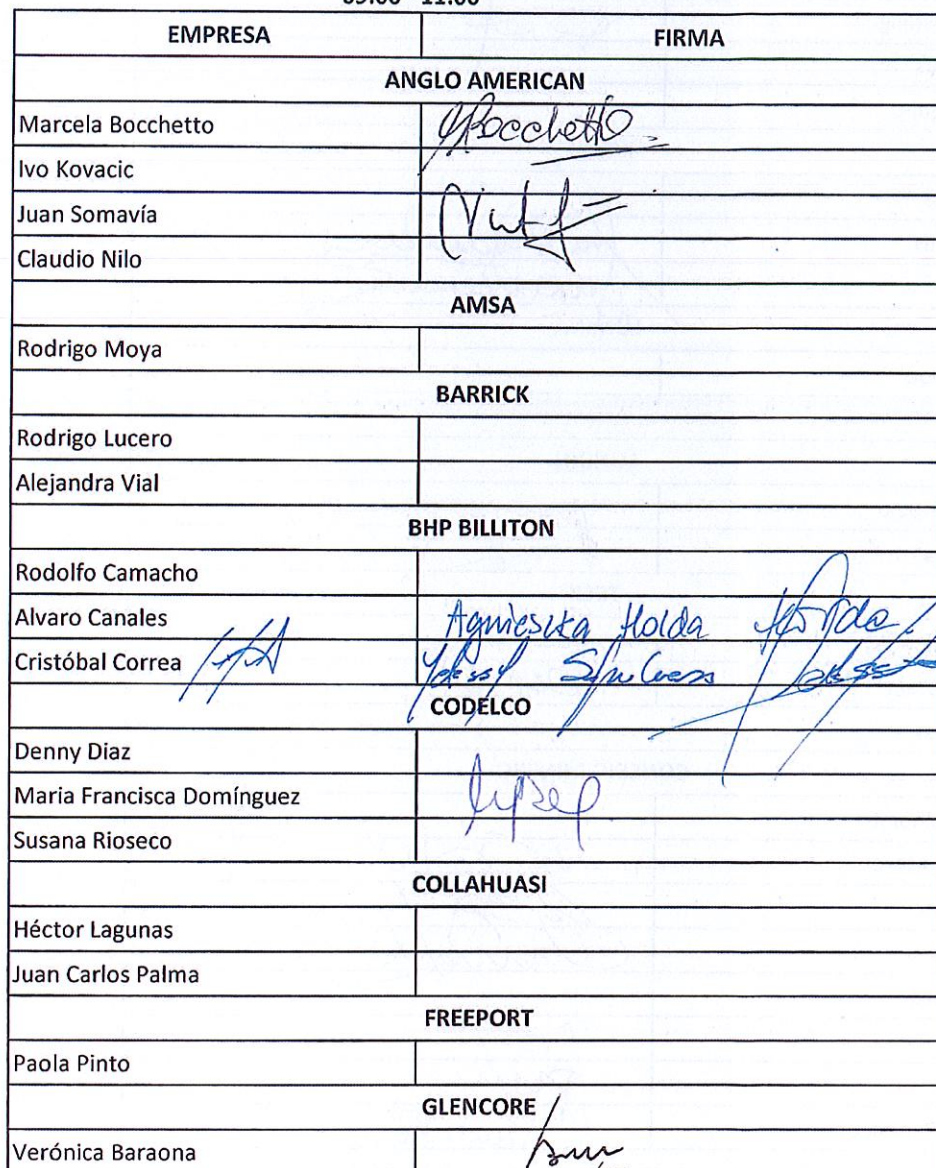 09:00 - 11:00
EMPRESA FIRMA
ANGLO AMERICAN
Marcela Bocchetto Bocchetto
Ivo Kovacic
Juan Somavía
Claudio Nilo
AMSA
Rodrigo Moya
BARRICK
Rodrigo Lucero
Alejandra Vial
BHP BILLITON
Rodolfo Camacho
Alvaro Canales Agnieszka Holda
Cristóbal Correa
CODELCO
Denny Diaz
Maria Francisca Domínguez
Susana Rioseco
COLLAHUASI
Héctor Lagunas
Juan Carlos Palma
FREEPORT
Paola Pinto
GLENCORE
Verónica Baraona